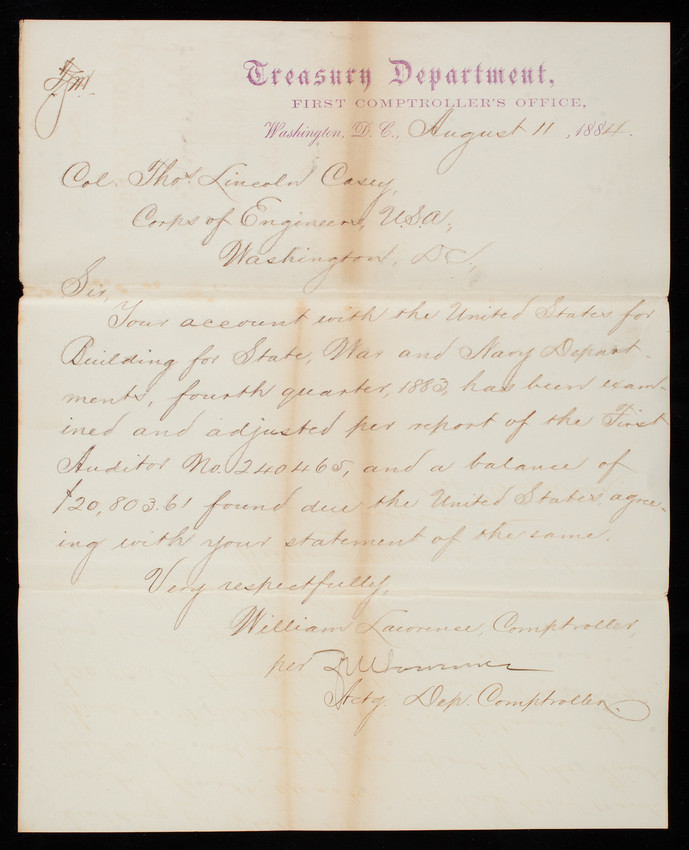 Treasury Department,
FIRST COMPTROLLER'S OFFICE,
Washington, D. C., August 11, 1884.
Col. Thos. Lincoln Casey,
Corps of Engineers, U.S.A.,
Washington, D.C.,
Sir,
Your account with the United States for
Building for State, War and Navy Depart-
ments, fourth quarter, 1883, has been exam-
ined and adjusted per report of the First
Auditor No. 240465, and a balance of
$20,803.61 found due the United States agree-
ing with your statement of the same.
Very respectfully,
William Lawrence, Comptroller,
per
Actg. Dep. Comptroller.